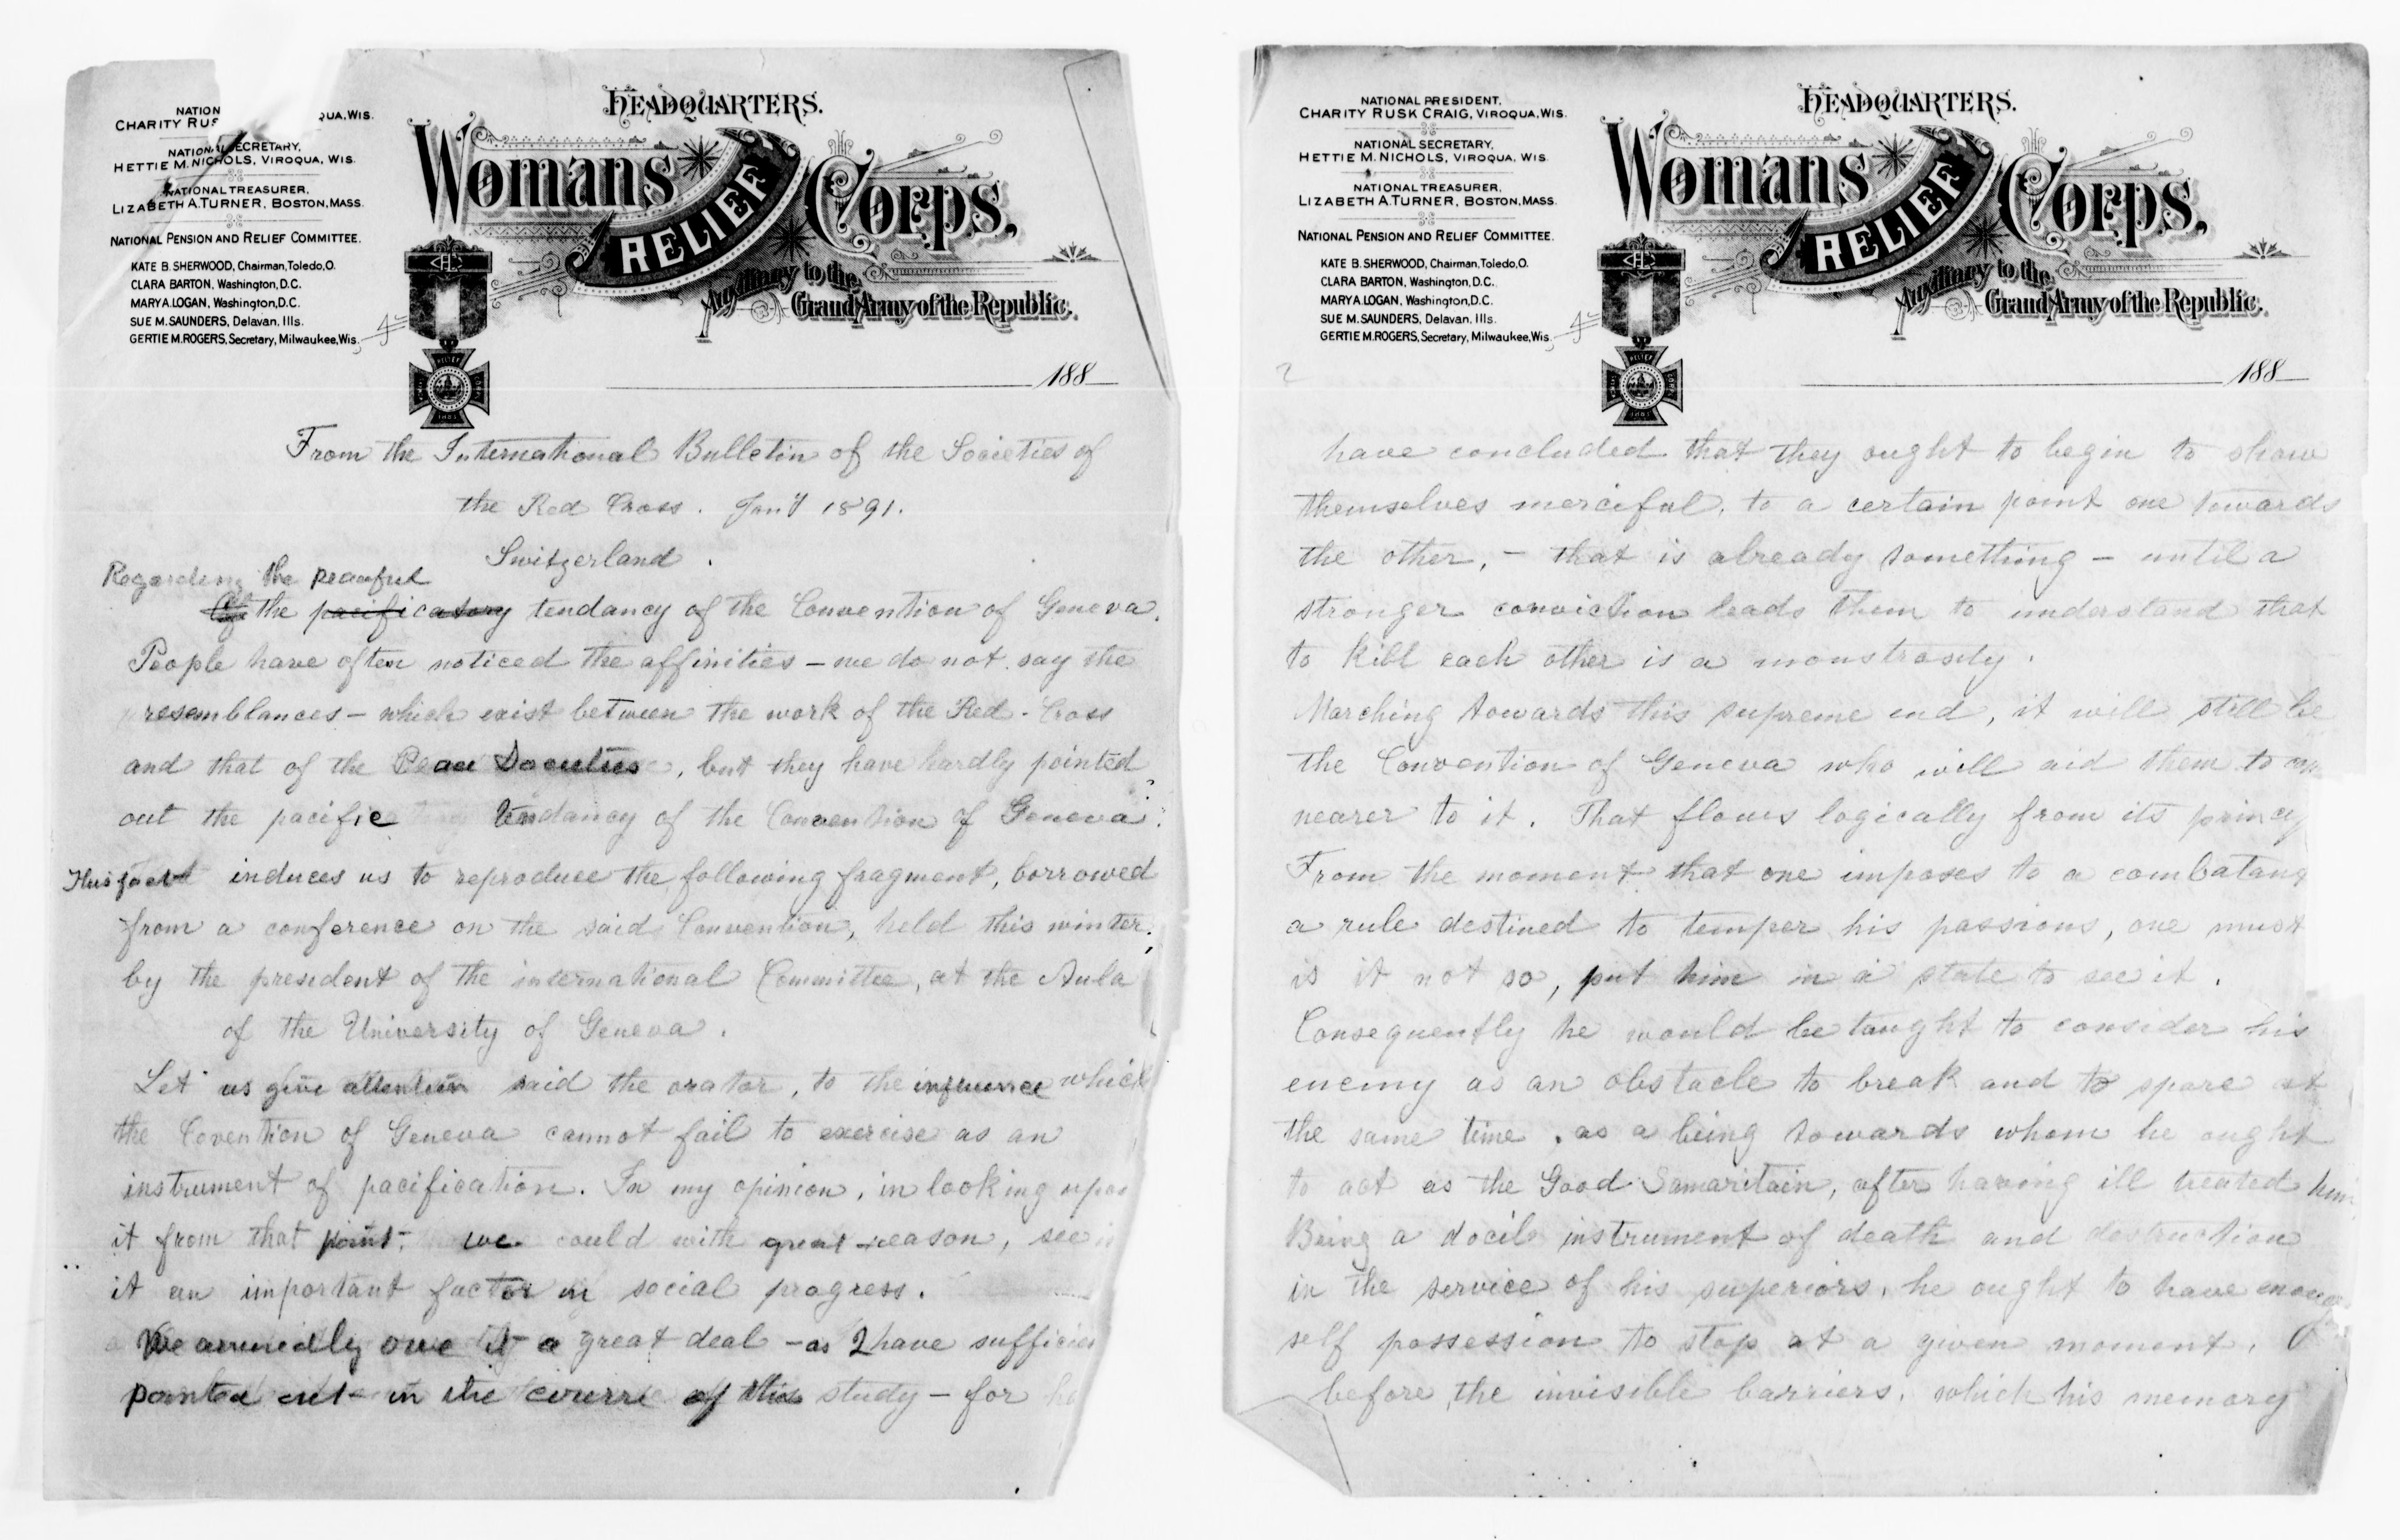 NATION
CHARITY RUS QUA, WIS.
NATIONAL SECRETARY,
HETTIE M. NICHOLS, VIROQUA, WIS.
NATIONAL TREASURER,
LIZABETH A. TURNER, BOSTON, MASS.
NATIONAL PENSION AND RELIEF COMMITTEE.
KATE B. SHERWOOD, Chairman, Toledo, O.
CLARA BARTON, Washington, D.C.
MARY A. LOGAN, Washington, D.C.
SUE M. SAUNDERS, Delavan, Ills.
GERTIE M. ROGERS, Secretary, Milwaukee, Wis.
HEADQUARTERS.
Womans RELIEF Corps,
Auxiliary to the
Grand Army of the Republic.
188
From the International Bulletin of the Societies of
the Red Cross. Jan'y 1891.
Switzerland.
Regarding the peaceful
Of the pacificatory tendancy of the Convention of Geneva.
People have often noticed the affinities – we do not say the
resemblances – which exist between the work of the Red-Cross
and that of the Peace Societies, but they have hardly pointed
out the pacific tendancy of the Convention of Geneva.
This fact induces us to reproduce the following fragment, borrowed
from a conference on the said Convention, held this winter,
by the president of the international Committee, at the Aula
of the University of Geneva.
Let us give attention said the orator, to the influence which
the Covention of Geneva cannot fail to exercise as an
instrument of pacification. In my opinion, in looking upon
it from that point, we could with great reason, see in
it an important factor in social progress.
We assuredly owe it a great deal – as I have sufficien
pointed out in the course of this study – for
NATIONAL PRESIDENT,
CHARITY RUSK CRAIG, VIROQUA, WIS.
NATIONAL SECRETARY,
HETTIE M. NICHOLS, VIROQUA, WIS.
NATIONAL TREASURER,
LIZABETH A. TURNER, BOSTON, MASS.
NATIONAL PENSION AND RELIEF COMMITTEE.
KATE B. SHERWOOD, Chairman, Toledo, O.
CLARA BARTON, Washington, D.C.
MARY A. LOGAN, Washington, D.C.
SUE M. SAUNDERS, Delavan, Ills.
GERTIE M. ROGERS, Secretary, Milwaukee, Wis.
HEADQUARTERS.
Womans RELIEF Corps,
Auxiliary to the
Grand Army of the Republic.
188
2
have concluded that they ought to begin to show
themselves merciful, to a certain point one towards
the other, – that is already something – until a
stronger conviction leads them to understand that
to kill each other is a monstrosity.
Marching towards this supreme end, it will still be
the Convention of Geneva who will aid them to
nearer to it. That flows logically from its princip
From the moment that one imposes to a combatant
a rule destined to temper his passions, one must
is it not so, put him in a state to see it.
Consequently he would be taught to consider his
enemy as an obstacle to break and to spare at
the same time, as a being towards whom he ought
to act as the Good Samaritain, after having ill treated him
Being a docile instrument of death and destruction
in the service of his superiors, he ought to have enough
self possession to stop at a given moment,
before, the invisible barriers, which his memory